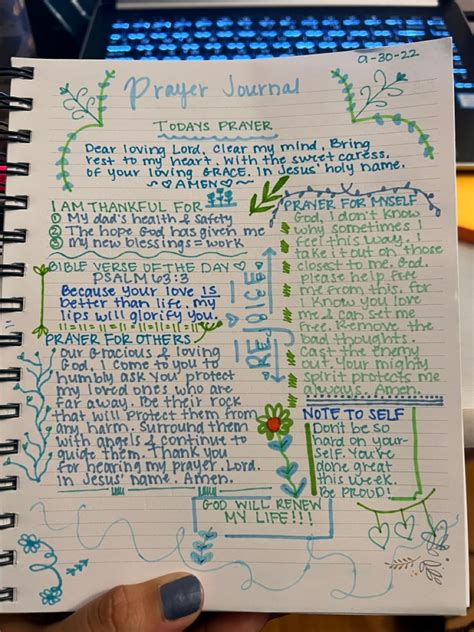 9-30-22
Prayer Journal
TODAYS PRAYER
Dear loving Lord, clear my mind. Bring
rest to my heart. With the sweet caress,
of your loving GRACE. In Jesus' holy name.
~♡AMEN♡~
I AM THANKFUL FOR
① My dad's health & safety
② The hope God has given me
③ my new blessings = work
BIBLE VERSE OF THE DAY
PSALM 63:3
Because your love IS
better than life. my
lips will glorify you.
PRAYER FOR OTHERS
Our Gracious & loving
God, I come to you to
humbly ask you protect
my loved ones who are
far away. Be their rock
that will protect them from
any harm. Surround them
with angels & continue to
guide them. Thank you
for hearing my prayer. Lord.
In Jesus' name. Amen.
REJOICE
PRAYER FOR MYSELF
God, I don't know
why sometimes I
feel this way, I
take it out on those
closest to me. God
please help free
me from this. for
I know you love
me & can set me
free. Remove the
bad thoughts.
Cast the enemy
out. Your mighty
spirit protects me
always. Amen.
NOTE TO SELF
Don't be so
hard on your-
self. You've
done great
this week.
Be PROUD!
GOD WILL RENEW
MY LIFE!!!